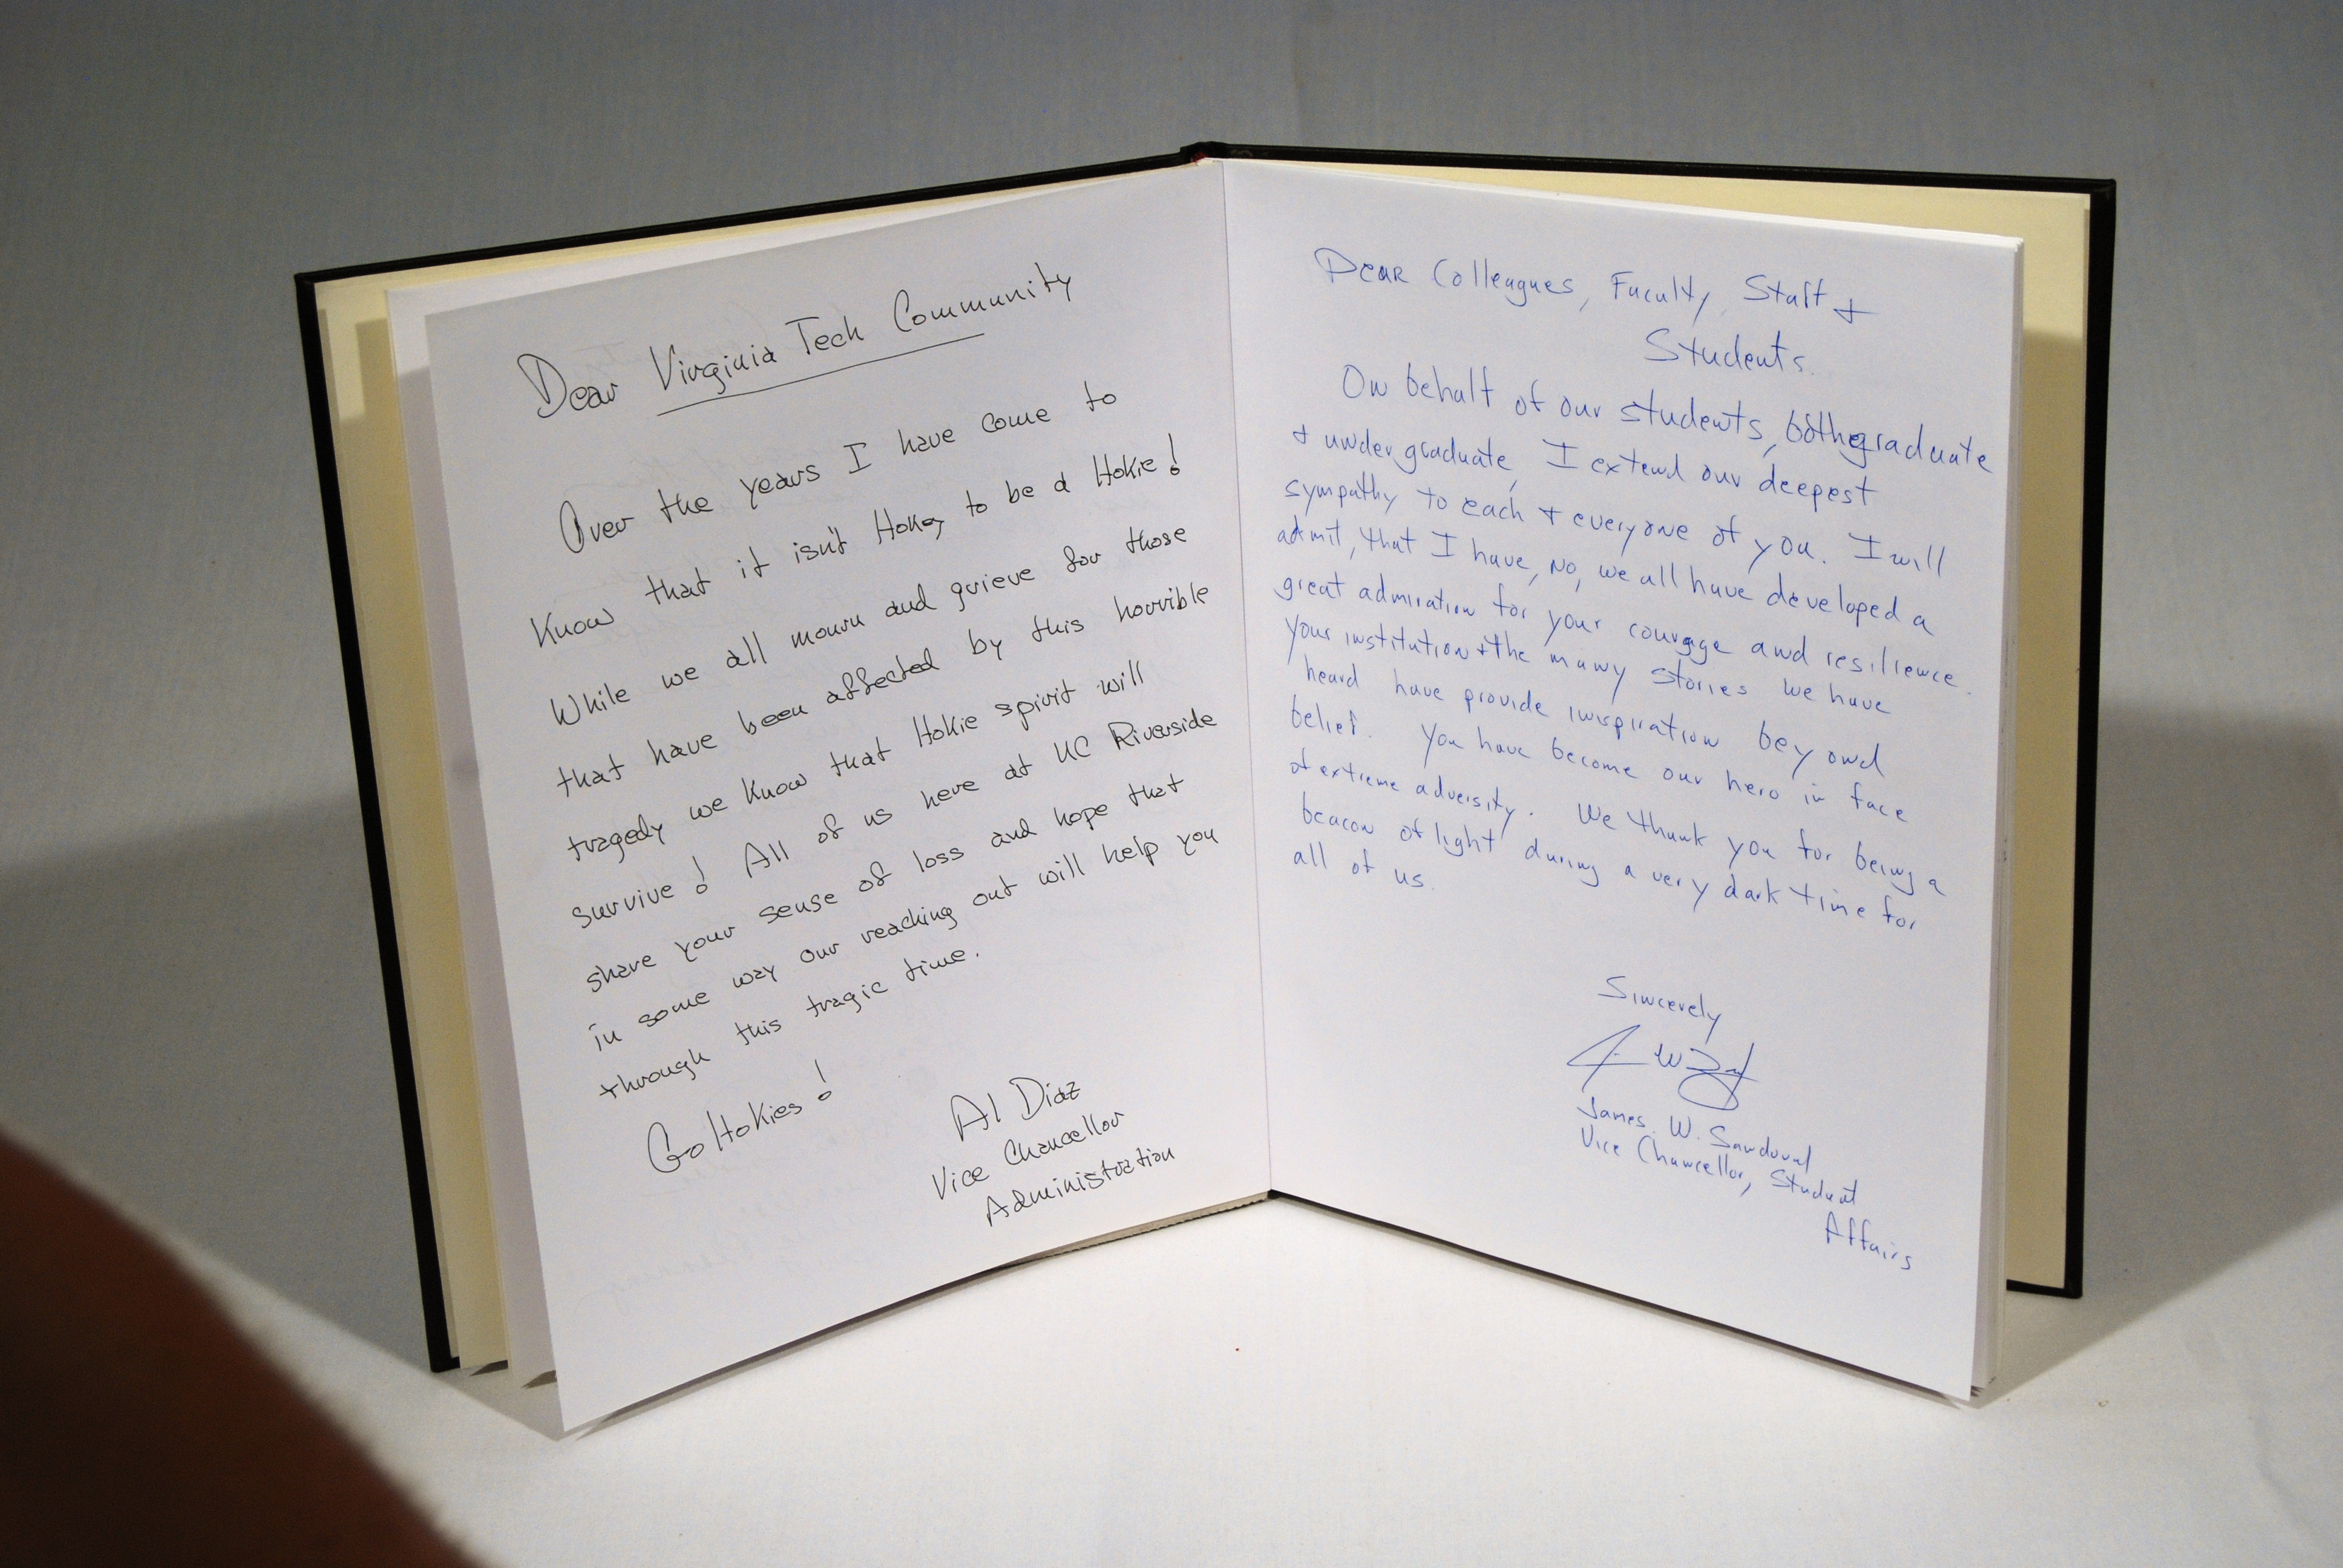 Dear Virginia Tech Community
Over the years I have come to
Know that it isn't Hokey to be a Hokie!
While we all mourn and grieve for those
that have been affected by this horrible
tragedy we know that Hokie spirit will
survive! All of us here at UC Riverside
share your sense of loss and hope that
in some way our reaching out will help you
through this tragic time.
Go Hokies!
Al Diaz
Vice Chancellor
Administration
Dear Colleagues, Faculty, Staff +
Students.
On behalf of our students, both graduate
+ undergraduate, I extend our deepest
sympathy to each + everyone of you. I will
admit, that I have, no, we all have developed a
great admiration for your courage and resilience.
Your institution + the many stories we have
heard have provide inspiration beyond
belief. You have become our hero in face
of extreme adversity. We thank you for being a
beacon of light during a very dark time for
all of us.
Sincerely
James W. Sandoval
Vice Chancellor, Student
Affairs